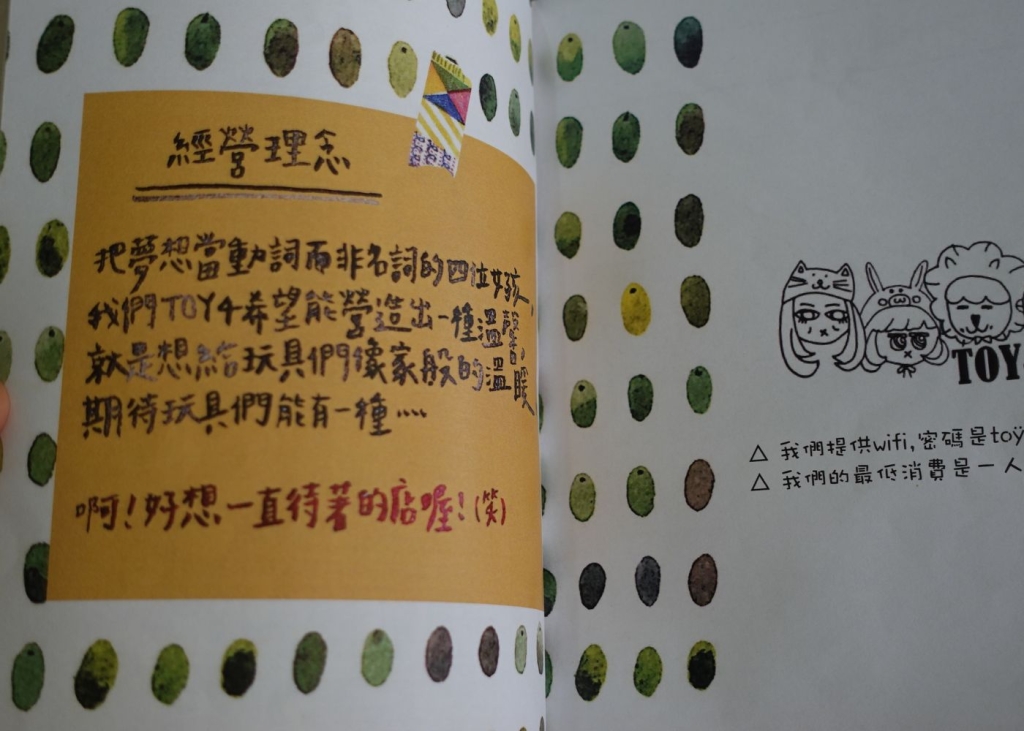 經營理念
把夢想當動詞而非名詞的四位女孩,
我們TOY4希望能營造出一種溫馨,
就是想給玩具們像家般的溫暖
期待玩具們能有一種....
啊!好想一直待著的店喔!(笑)
TOY
△ 我們提供wifi,密碼是toy
△ 我們的最低消費是一人